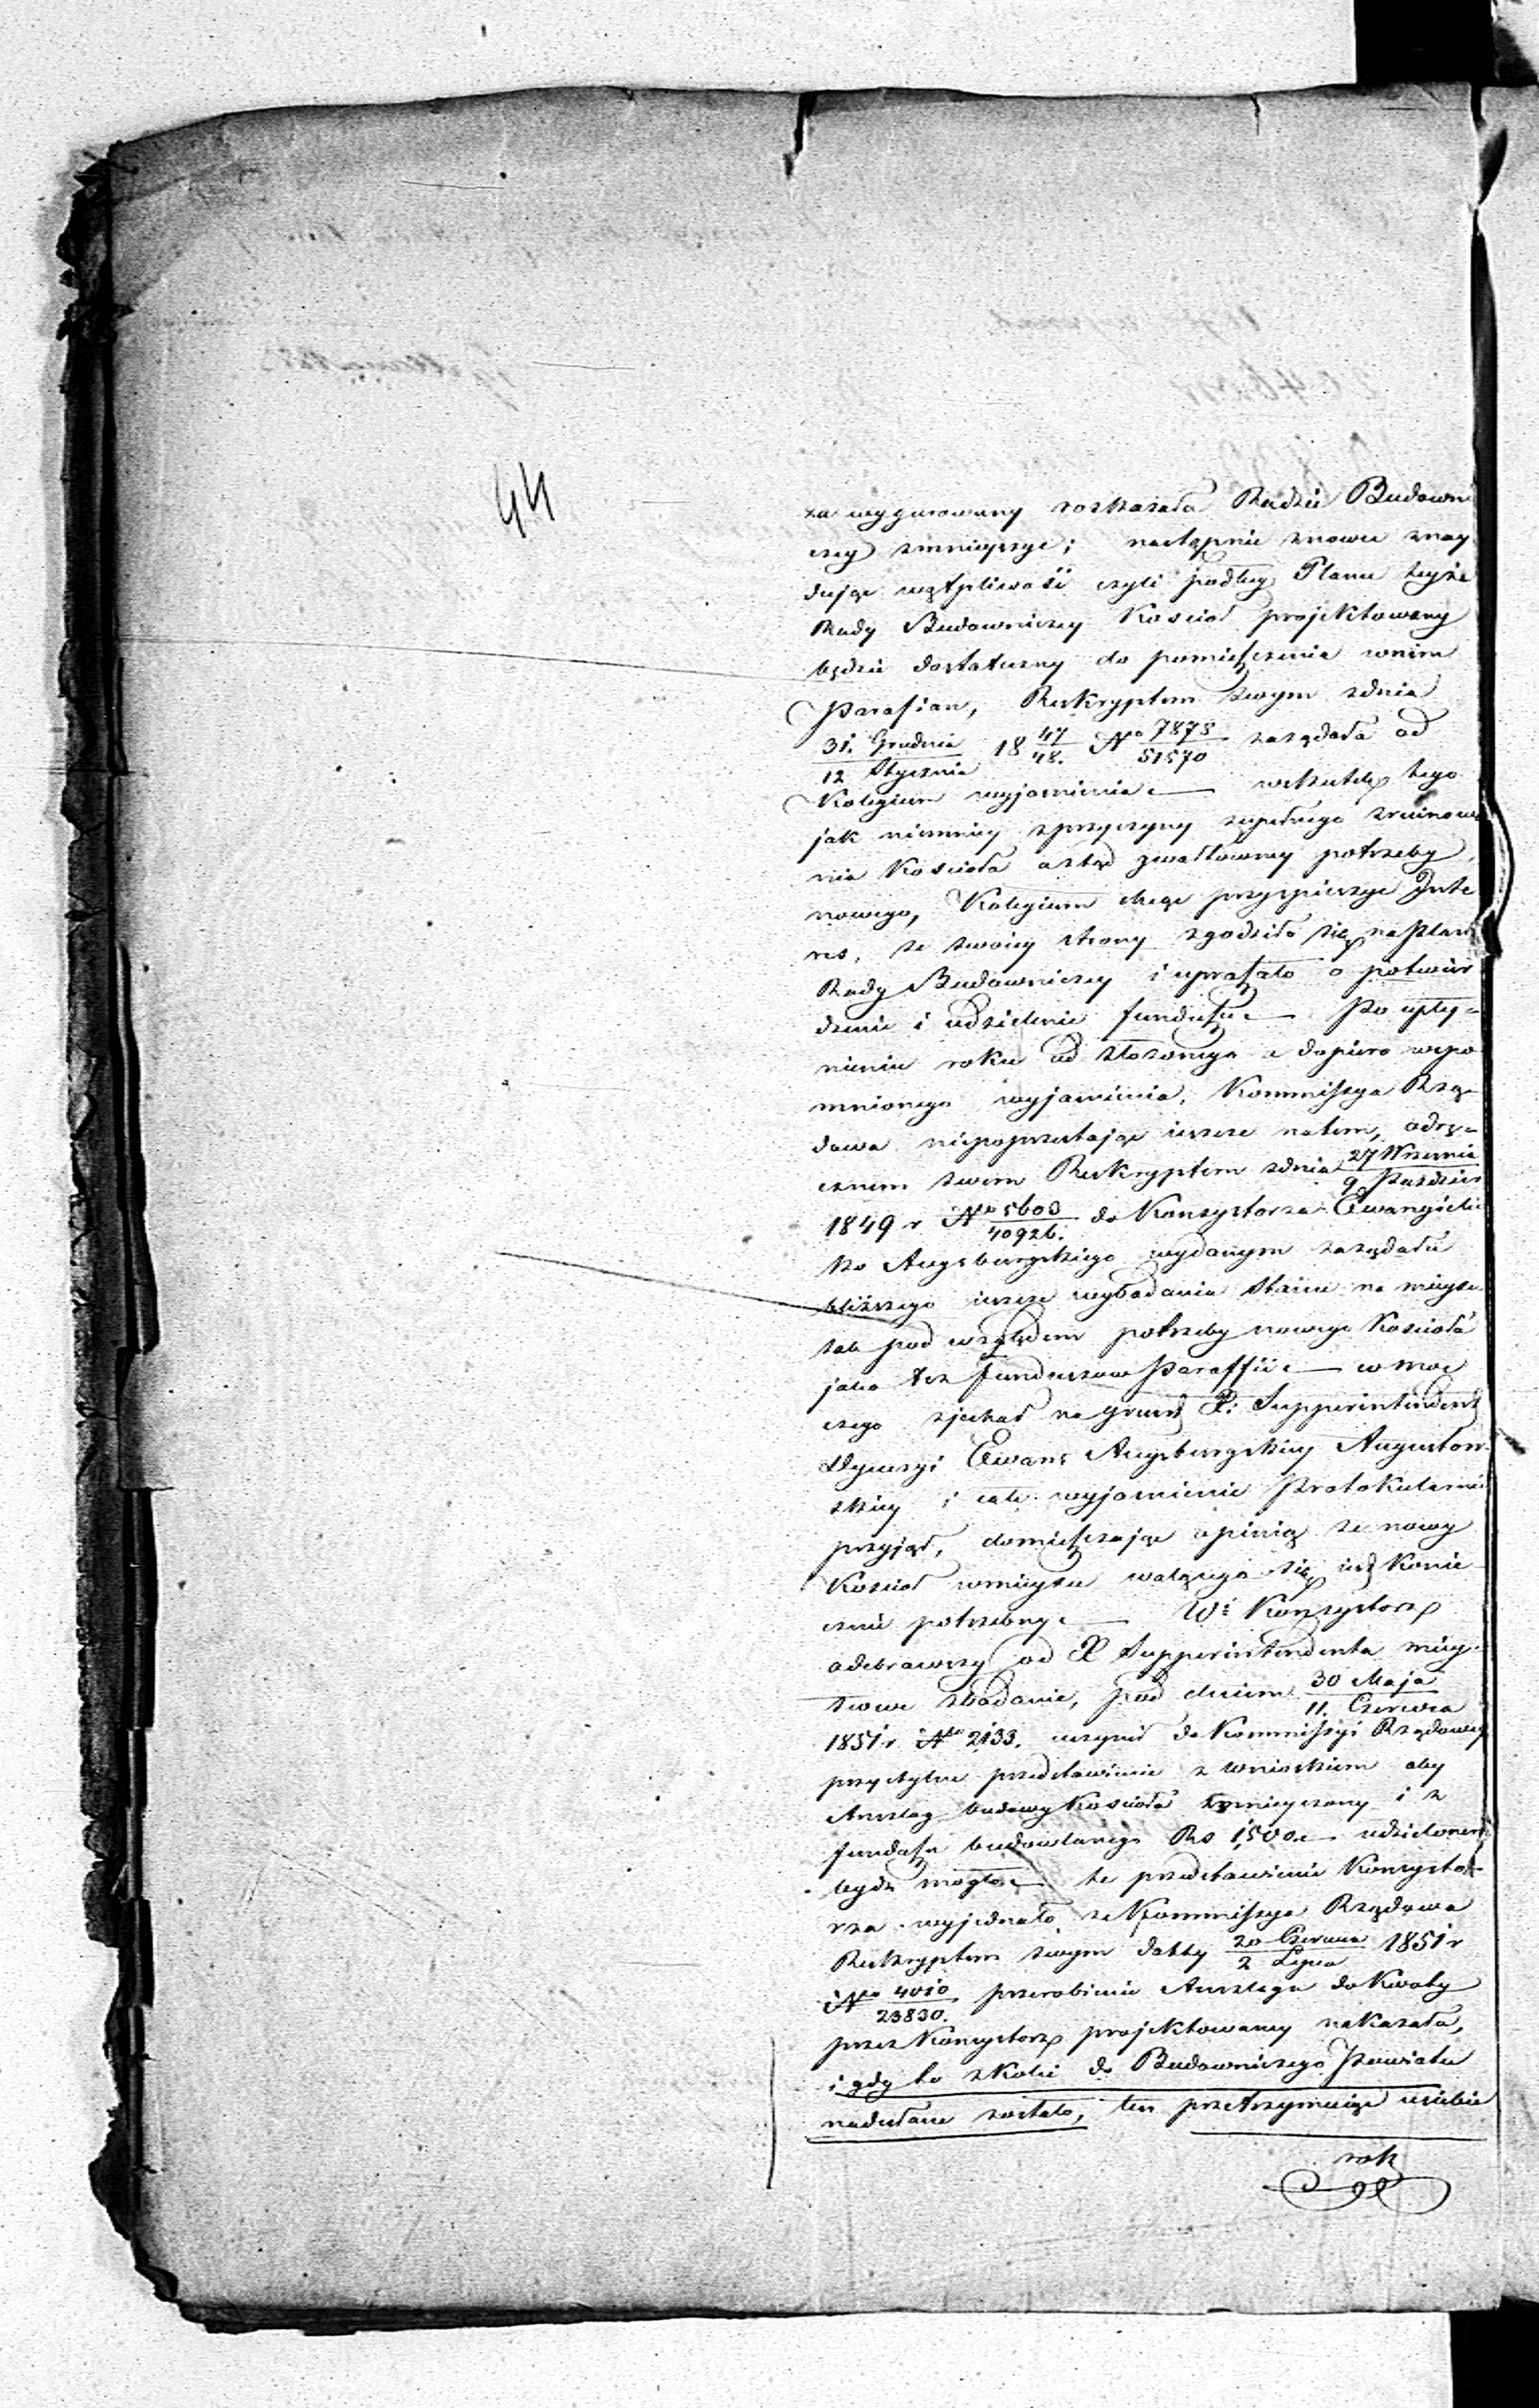 44
za wygurowany rozkazała Radzie Budowni
czej zmnieyszyć; następnie znowu znay
dując wątpliwość czyli podług Planu teyże
Rady Budowniczey Kościoł projektowany
będzie dostateczny do pomieszczenia wnim
Parafian, Reskryptem swym zdnia
31. Grudnia / 12 Stycznia 18 47/48. No 7875/51570 zażądała od
Kolegium wyjaśnienia. — wskutek tego
jak niemniey zprzyczyny zupełnego zruinowa
nia Kościoła aztąd gwałtowney potrzeby
nowego, Kolegium chcąc przyspieszyć Inte
res, ze swoiey strony zgodziło się na Plan
Rady Budowniczey i upraszało o potwier
dzenie i udzielenie funduszu. — Po upły-
nieniu roku od złożonego a dopiero wspo
mnionego wyjaśnienia, Kommissya Rzą-
dowa niepoprzestając ieszcze natem, odrę-
cznem swem Reskryptem zdnia 27 Wrzesnia / 9 Paździer
1849 r No 5603/40926. do Konsystorza Ewangielic
ko Augsburgskiego wydanym zażądała
bliższego ieszcze wybadania stanu na mieyscu
tak pod względem potrzeby nowego Kościoła
jako też funduszow Paraffii. — w moc
czego zjechał na grunt X. Supperintendent
Dyecezyi Ewan: Augsburgskiey Augustow
skiey i całe wyjaśnienie Protokularnie
przyjął, domieszczając opinią że nowy
Kościoł wmieyscu walącego się iest Konie
cznie potrzebny. — W: Konsystorz
odebrawszy od X Supperintendenta miey-
scowe zbadanie, pod dniem 30 Maja / 11. Czerwca
1851 r No 2133. uczynił do Kommissyi Rządowey
przychylne przedstawienie z wnioskiem aby
Anszlag budowy Kościoła zmnieyszony i z
funduszu budowlanego Rs 1,500. — udzielonem
bydź mogło. — te przedstawienie Konsysto-
rza wyjednało, że Kommissya Rządowa
Reskryptem swym datty 20 Czerwca / 2 Lipca 1851 r
No 4010/23830. przerobienie Anszlagu do Kwoty
przez Konsystorz projektowaney nakazała,
i gdy to zkolei do Budowniczego Powiatu
nadesłane zostało, ten przetrzymuiąc usiebie
rok